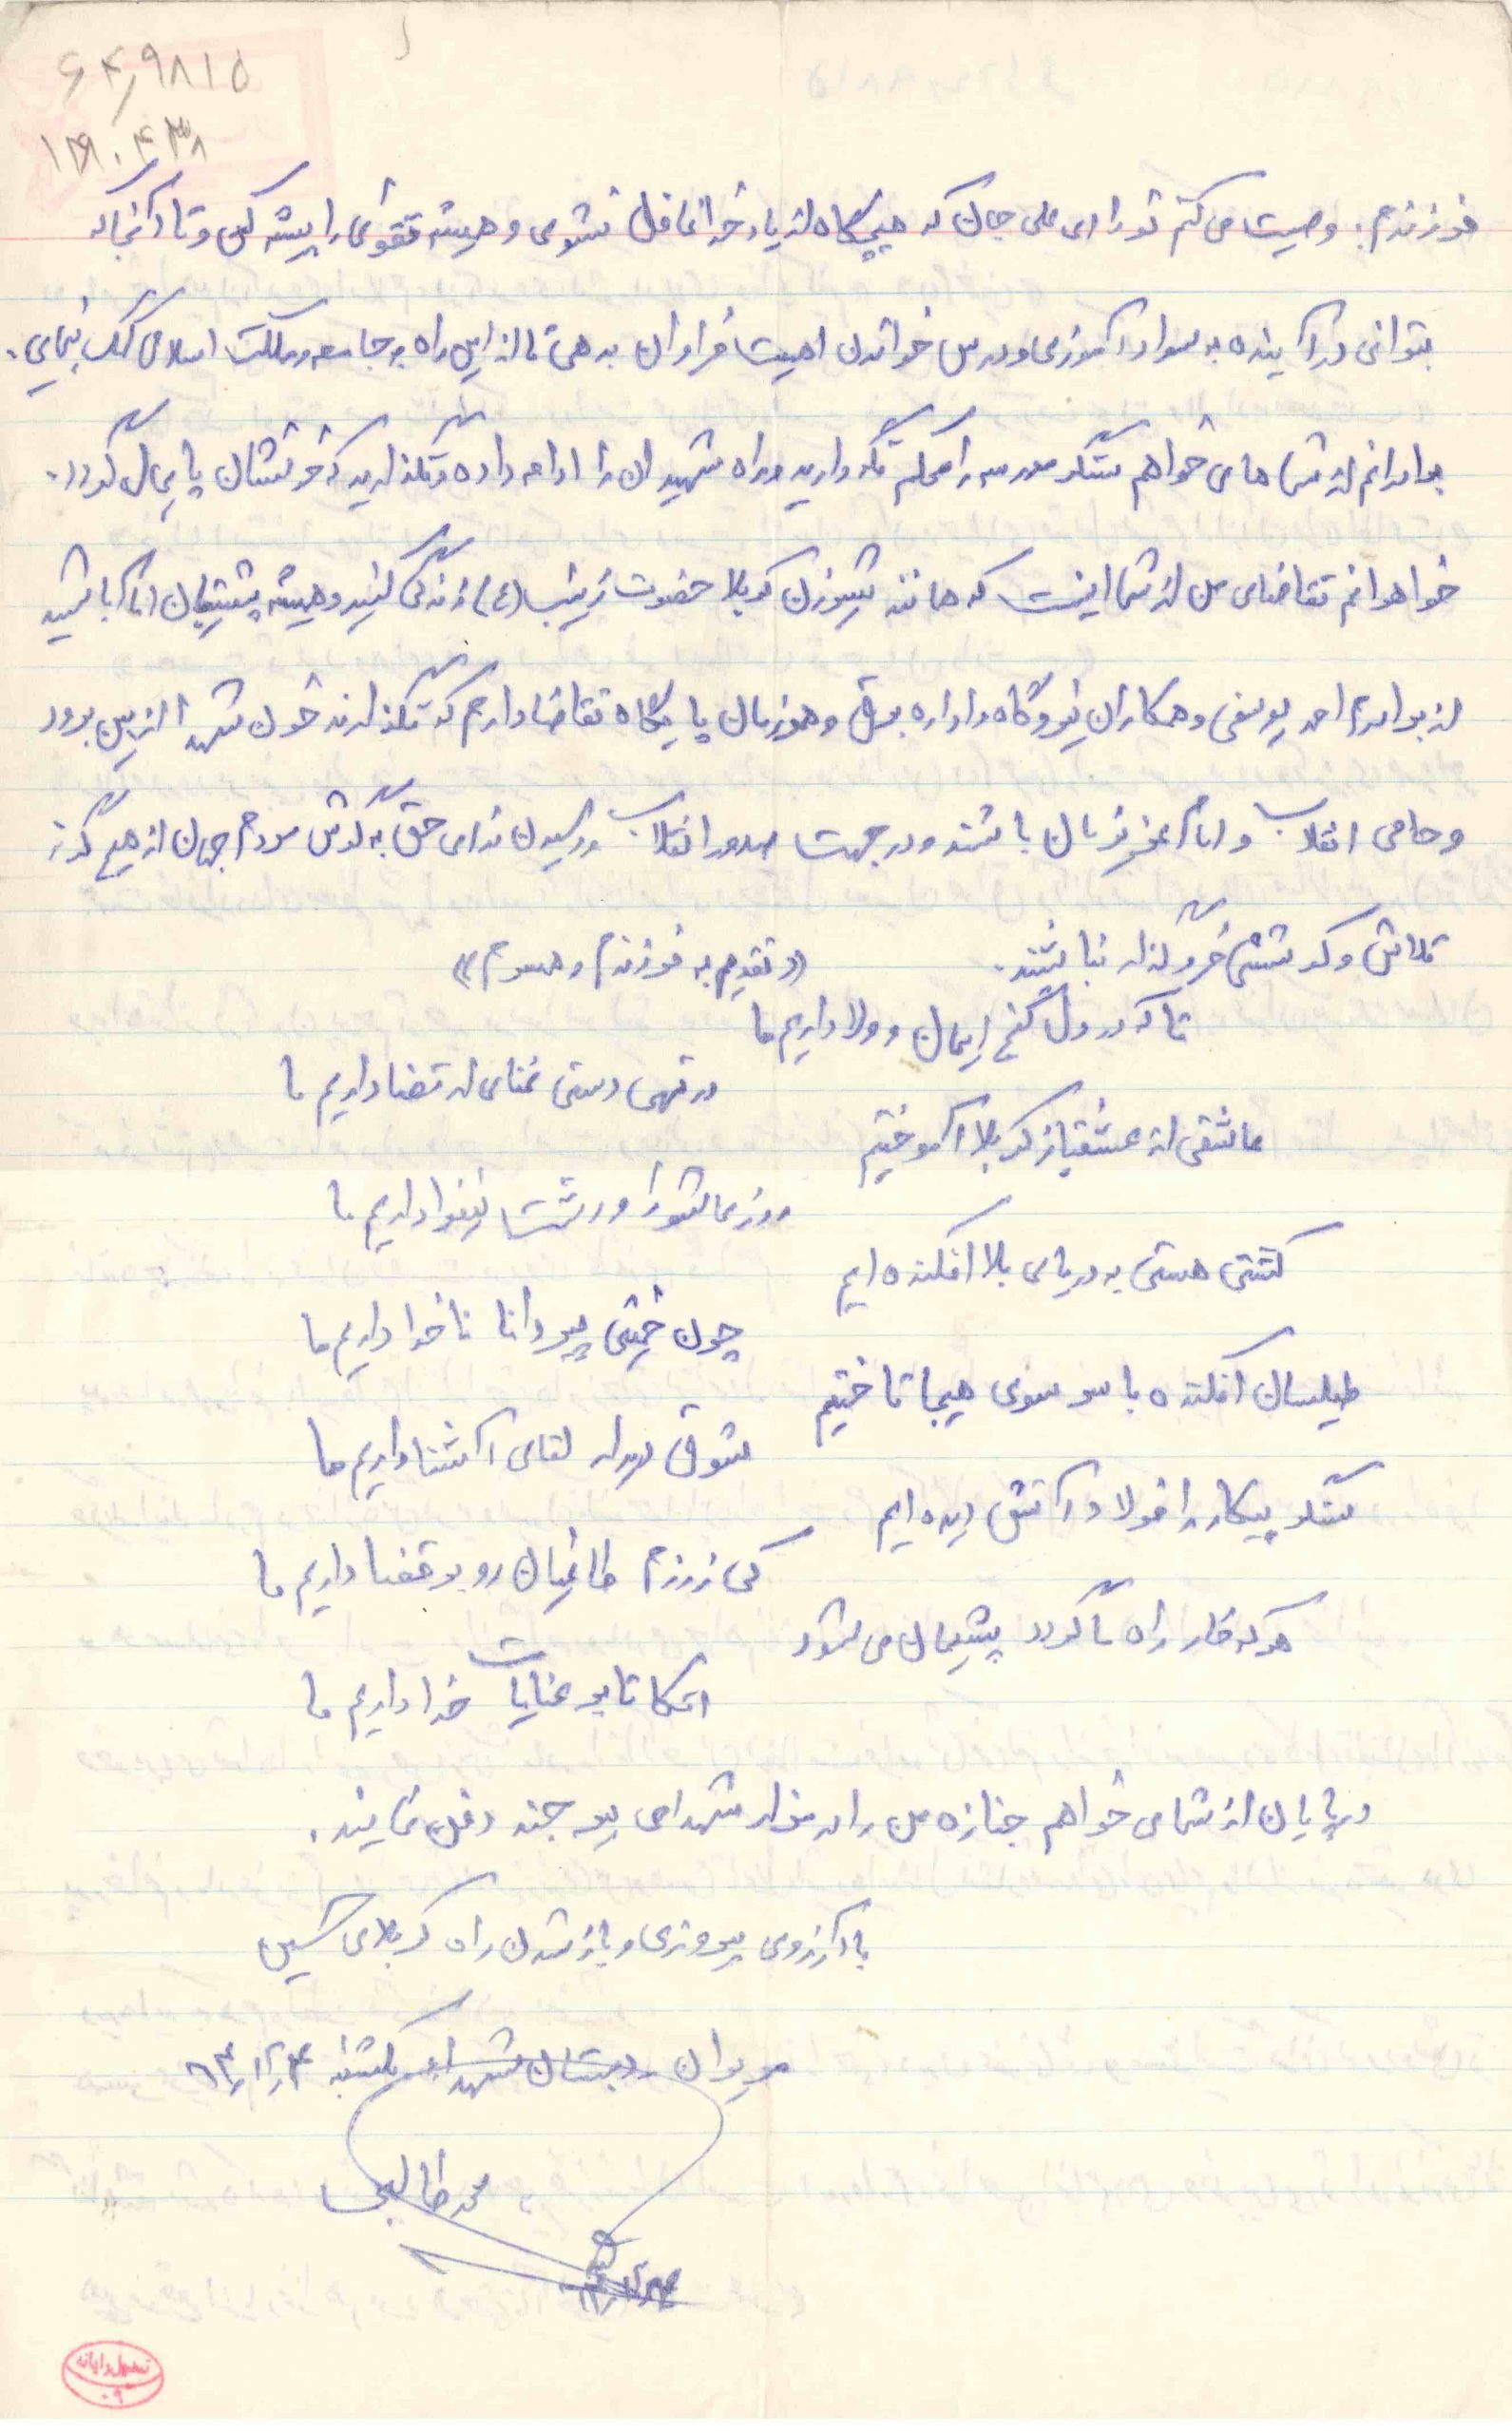 ۶۴٫۹۸۱۵
فرزندم: وصیت می کنم تو را ای علی جان که هیچگاه از یاد خدا غافل نشوی و همیشه تقوی را پیشه کن و تا آنجا که
بتوانی در آینده به سواد آموزی و درس خواندن اهمیت فراوان بدهی تا از این راه به جامعه و مملکت اسلامی کمک نمایی.
برادرانم از شما می خواهم سنگر مدرسه را محکم نگه دارید و راه شهیدان را ادامه داده و نگذارید که خونشان پایمال گردد.
خواهرانم تقاضای من از شما اینست که مانند شیرزن کربلا حضرت زینب (ع) زندگی کنید و همیشه پشتیبان امام باشید
از برادرم احمد یوسفی و همکاران نیروگاه و اداره برق و همرزمان پایگاه تقاضا دارم که نگذارند خون شهدا از بین برود
و حامی انقلاب و امام عزیزمان باشند و در جهت صدور انقلاب و رسیدن ندای حق به گوش مردم جهان از هیچ گونه
تلاش و کوششی فروگذار نباشند.
«تقدیم به فرزندم و همسرم»
تا که در دل گنج ایمان و ولا داریم ما
در تهی دستی غنای ارتضا داریم ما
عاشقی از عشقباز کربلا آموختیم
روز عاشورا و دشت نینوا داریم ما
کشتی هستی به دریای بلا افکنده ایم
چون خمینی پیر دانا ناخدا داریم ما
طیلسان افکنده با سر سوی هیجا تاختیم
شوق دیدار لقای آشنا داریم ما
سنگر پیکار را فولاد آتش دیده ایم
کی ز رزم طاغیان رو بر قفا داریم ما
هر که خار راه ما گردد پشیمان می شود
اتکا تا بر عنایات خدا داریم ما
در پایان از شما می خواهم جنازه من را در مزار شهدای بیرجند دفن نمایند.
با آرزوی پیروزی و باز شدن راه کربلای حسین
مریوان دبستان شهدا یکشنبه
محمد طالبی